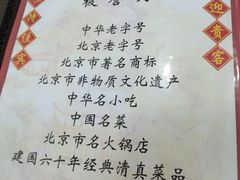 中华老字号
北京老字号
北京市著名商标
北京市非物质文化遗产
中华名小吃
中国名菜
北京市名火锅店
建国六十年经典清真菜品
迎
貴
客